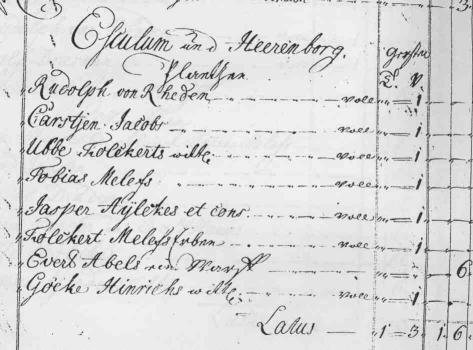 3.
Esculum und Heerenborg.
Grasen
Planken
Rudolph von Rheden ---- voll „ — 1 „
Carstjen Jacobs ---- voll „ — 1 „
Ubbe Folckerts witt: ---- voll „ — 1 „
Tobias Melefs ---- voll „ — 1 „
Jasper Aÿlckes et cons. ---- voll „ — 1 „
Folckert Melefs Erben ---- voll „ — 1 „
Evert Abels ein Warff ---- „ 6.
Goeke Hinrichs witt: ---- voll „ — 1 „
Latus — „ 1 — 3. 1. 6.